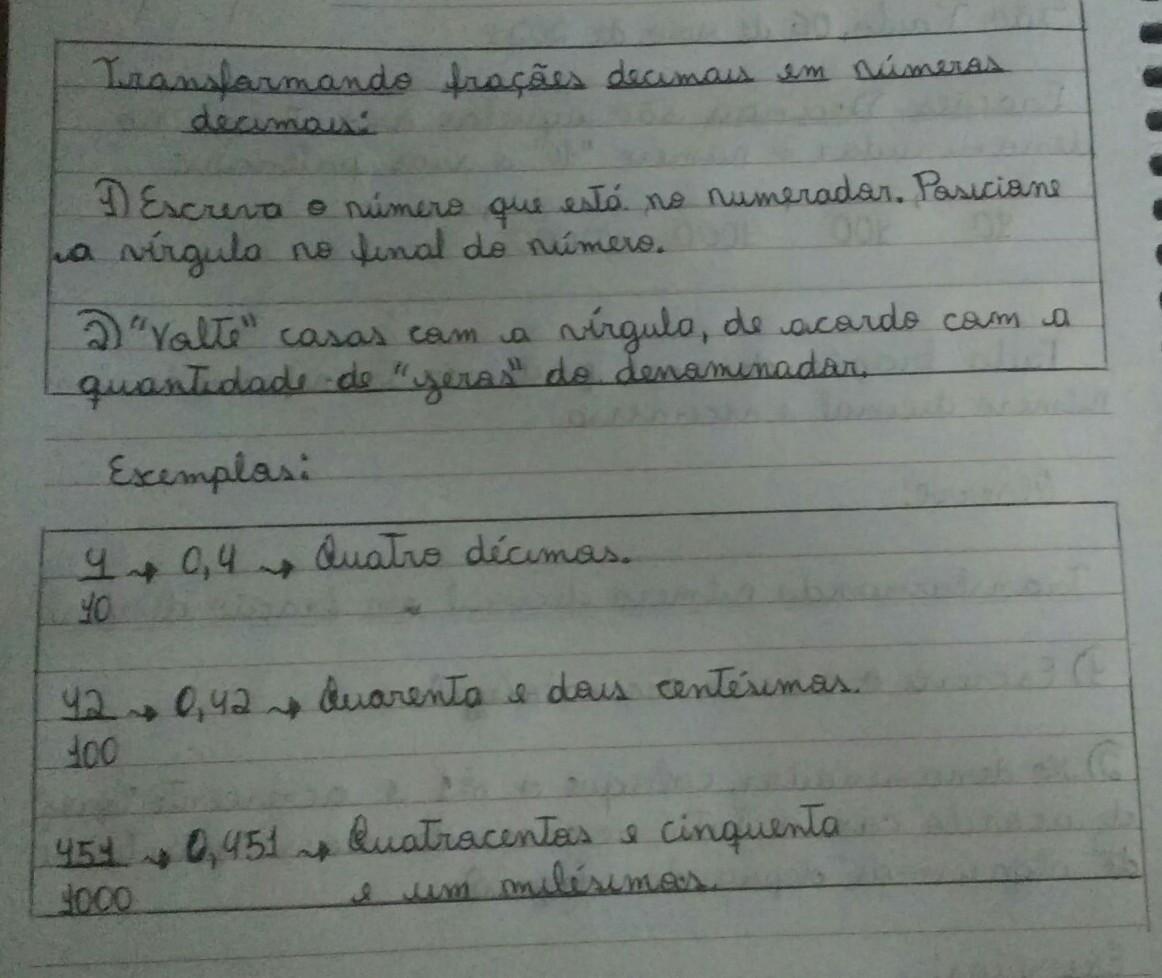 Transformando frações decimais em números
decimais:
1) Escreva o número que está no numerador. Posicione
a vírgula no final do número.
2) "Volte" casas com a vírgula, de acordo com a
quantidade de "zeros" do denominador.
Exemplos:
4 → 0,4 → Quatro décimos.
10
42 → 0,42 → Quarenta e dois centésimos.
100
451 → 0,451 → Quatrocentos e cinquenta
1000 e um milésimos.